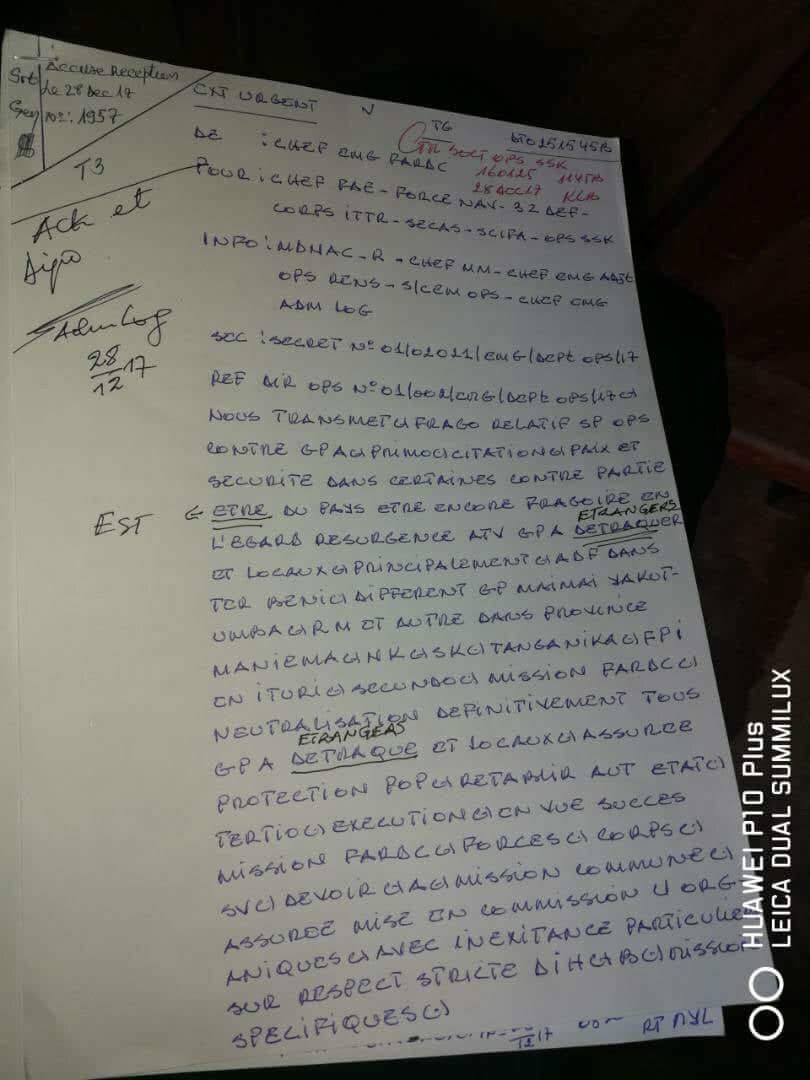 Accusé Reception
Srt Le 28 Dec 17
Gey no: 1957
T3
Ack et
Dispo
AdmLog
28/12 17
CXT URGENT N
TG
DTO 151545B
TR SOCT OPS SSK
160125 1145B
28 DEC 17 KLB
DE : CHEF EMG FARDC
POUR : CHEF FAE - FORCE NAV - 32 DEF -
CORPS ITTR - SECAS - SCIFA - OPS SSK
INFO : MDNAC - R - CHEF MM - CHEF EMG ADJT
OPS RENS - S/CEM OPS - CHEF EMG
ADM LOG
SCC : SECRET N° 01/02011/EMG/DEPT OPS/17
REF DIR OPS N° 01/002/EMG/DEPT OPS/17(-)
NOUS TRANSMET(-)FRAGO RELATIF SP OPS
CONTRE GPA(-)PRIMO(-)CITATION(-)PAIX ET
SECURITE DANS CERTAINES CONTRE PARTIE
EST ETRE DU PAYS ETRE ENCORE FRAGOIRE EN
ETRANGERS
L'EGARD RESURGENCE ATV GPA DETRAQUER
ET LOCAUX(-)PRINCIPALEMENT(-)ADF DANS
TER BENI(-)DIFFERENT GP MAIMAI YAKUT-
UMBA(-)RM ET AUTRE DANS PROVINCE
MANIEMA(-)NK(-)SK(-)TANGANIKA(-)FPI
EN ITURI(-)SECUNDO(-)MISSION FARDC(-)
NEUTRALISATION DEFINITIVEMENT TOUS
ETRANGERS
GPA DETRAQUE ET LOCAUX(-)ASSUREE
PROTECTION POP(-)RETABLIR AUT ETAT(-)
TERTIO(-)EXECUTION(-)EN VUE SUCCES
MISSION FARDC(-)FORCES(-)CORPS(-)
SV(-)DEVOIR(-)A(-)MISSION COMMUNE(-)
ASSUREE MISE EN COMMISSION U ORG-
ANIQUES(-)AVEC INEXITANCE PARTICULIER
SUR RESPECT STRICTE DIH(-)B(-)MISSION
SPECIFIQUES(-)
12 17 RT MYL
HUAWEI P10 Plus
LEICA DUAL SUMMILUX